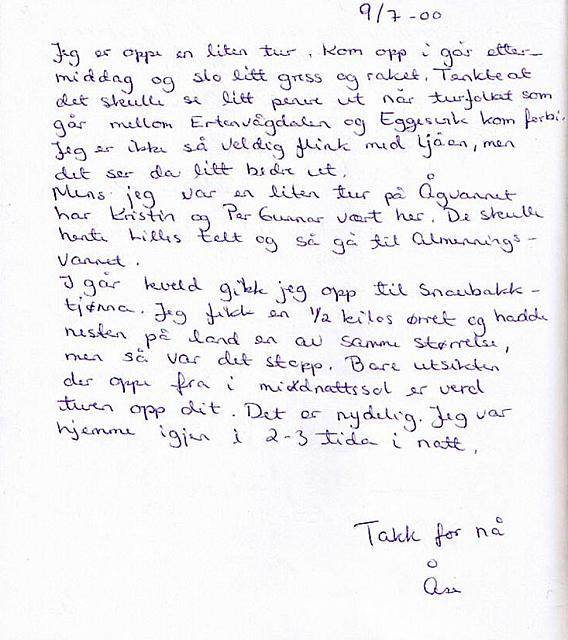 9/7-00
Jeg er oppe en liten tur. Kom opp i går etter-
middag og slo litt gress og raket. Tenkte at
det skulle se litt penere ut når turfolket som
går mellom Ertenvågdalen og Eggesvik kom forbi.
Jeg er ikke så veldig flink med ljåen, men
det ser da litt bedre ut.
Mens jeg var en liten tur på Ågvannet
har Kristin og Per Gunnar vært her. De skulle
hente Lillis telt og så gå til Almennings-
vannet.
I går kveld gikk jeg opp til Snaubakk-
tjønna. Jeg fikk en 1/2 kilos ørret og hadde
nesten på land en av samme størrelse,
men så var det stopp. Bare utsikten
der oppe fra i midnattssol er verd
turen opp dit. Det er nydelig. Jeg var
hjemme igjen i 2-3 tida i natt.
Takk for nå
Åse